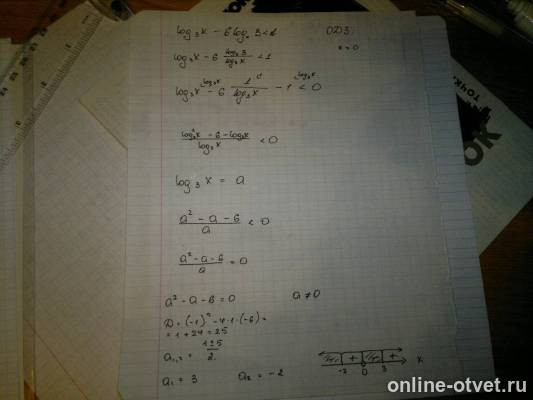 log₃x - 6logₓ3<1
ОДЗ:
x>0
log₃x - 6 log₃3/log₃x < 1
log₃x - 6 1/log₃x - 1 < 0
(log₃²x - 6 - log₃x)/log₃x < 0
log₃x = a
(a² - a - 6)/a < 0
(a² - a - 6)/a = 0
a² - a - 6 = 0 a ≠ 0
D = (-1)² - 4·1·(-6) =
= 1 + 24 = 25
a₁,₂ = (1±5)/2.
a₁ = 3 a₂ = -2
+ +
-2 0 3 x
ТОЧК
online-otvet.ru